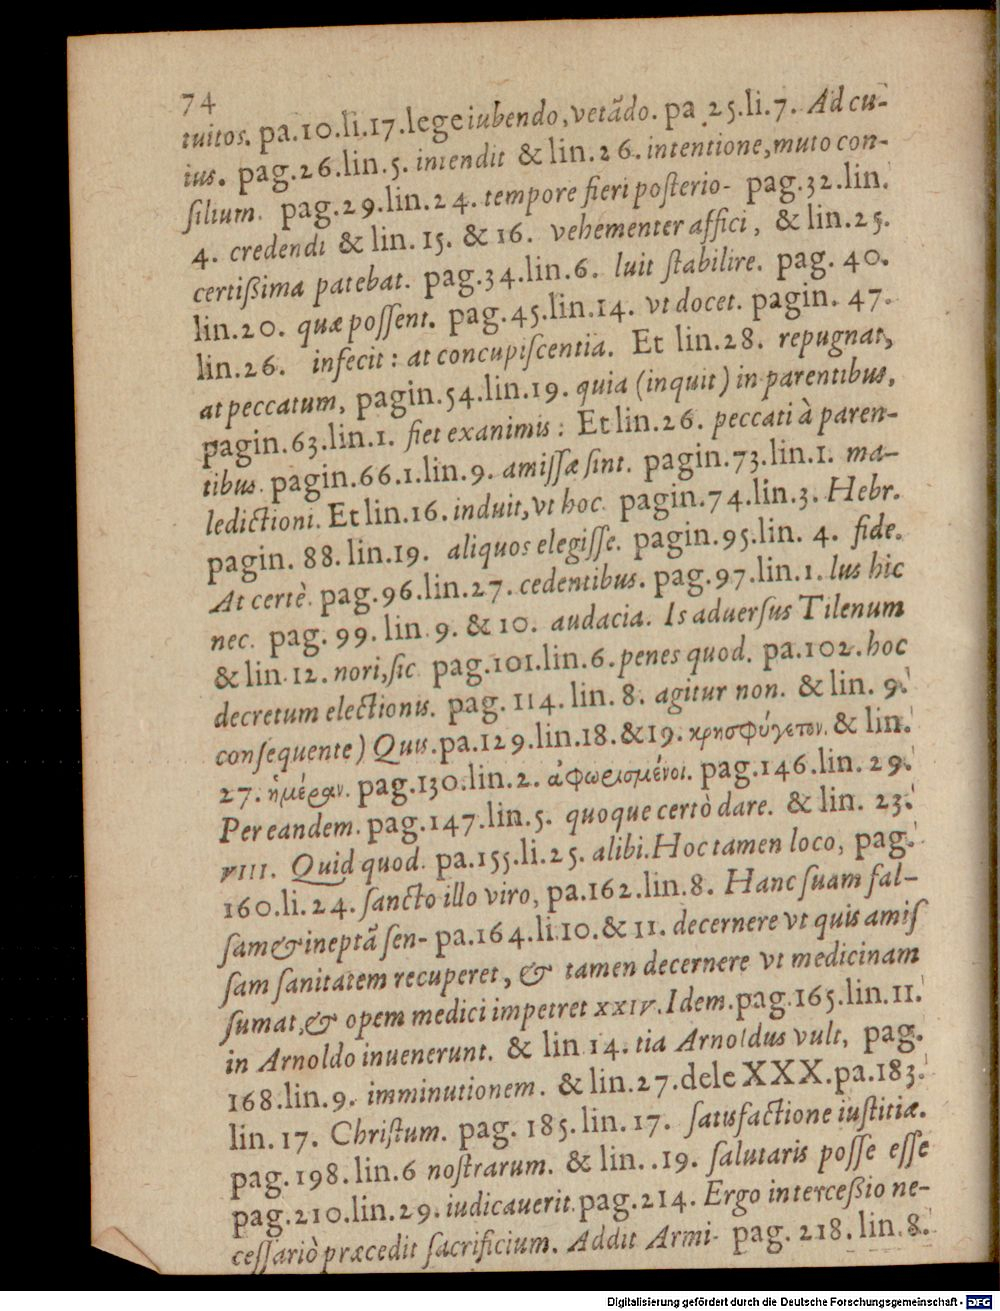 74
tuitos. pa.10.li.17.lege iubendo, vetãdo. pa 25.li.7. Ad cu-
ius. pag.26.lin.5. intendit & lin.26. intentione, muto con-
ſilium. pag.29.lin.24. tempore fieri poſterio- pag.32.lin.
4. credendi & lin. 15. & 16. vehementer affici, & lin.25.
certißima patebat. pag.34.lin.6. luit ſtabilire. pag. 40.
lin.20. quæ poſſent. pag.45.lin.14. vt docet. pagin. 47.
lin.26. infecit: at concupiſcentia. Et lin.28. repugnat,
at peccatum, pagin.54.lin.19. quia (inquit) in parentibus,
pagin.63.lin.1. fiet exanimis: Et lin.26. peccati à paren-
tibus. pagin.66.1.lin.9. amiſſæ ſint. pagin.73.lin.1. ma-
ledictioni. Et lin.16. induit, vt hoc. pagin.74.lin.3. Hebr.
pagin. 88. lin.19. aliquos elegiſſe. pagin.95.lin. 4. fide.
At certè. pag.96.lin.27. cedentibus. pag.97.lin.1. Ius hic
nec. pag. 99. lin. 9. & 10. audacia. Is aduerſus Tilenum
& lin. 12. nori, ſic pag.101.lin.6. penes quod. pa.102. hoc
decretum electionis. pag. 114. lin. 8. agitur non. & lin. 9.
conſequente) Quis. pa.129.lin.18.&19. κρησφύγετον. & lin.
27. ἡμέραν. pag.130.lin.2. ἀφωρισμένοι. pag.146.lin. 29.
Per eandem. pag.147.lin.5. quoque certò dare. & lin. 23.
VIII. Quid quod. pa.155.li.25. alibi. Hoc tamen loco, pag.
160.li.24. ſancto illo viro, pa.162.lin.8. Hanc ſuam fal-
ſam & ineptã ſen- pa.164.li.10.& 11. decernere vt quis amiſ
ſam ſanitatem recuperet, & tamen decernere vt medicinam
ſumat, & opem medici impetret XXIV. Idem. pag.165.lin.11.
in Arnoldo inuenerunt. & lin 14. tia Arnoldus vult, pag.
168.lin.9. imminutionem. & lin.27.dele XXX.pa.183.
lin. 17. Chriſtum. pag. 185. lin. 17. ſatisfactione iuſtitiæ.
pag.198.lin.6 noſtrarum. & lin. .19. ſalutaris poſſe eſſe
pag.210.lin.29. iudicauerit. pag.214. Ergo interceßio ne-
ceſſariò præcedit ſacrificium. Addit Armi- pag. 218. lin.8.
Digitalisierung gefördert durch die Deutsche Forschungsgemeinschaft - DFG